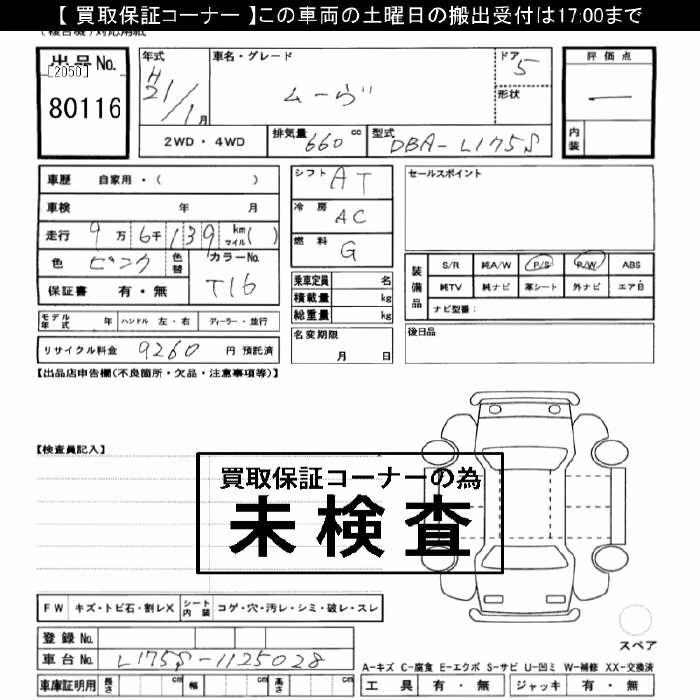 【 買取保証コーナー 】この車両の土曜日の搬出受付は17:00まで
(複合機)対応用紙
出品No.
[2050]
80116
年式 H21/1月
車名・グレード ムーヴ
ドア 5
形状
評価点 —
内装
2WD・4WD
排気量 660 cc
型式 DBA-L175S
車歴 自家用・( )
車検 年 月
走行 9万6千139 km マイル( )
色 ピンク 色替 カラーNo. T16
保証書 有・無
シフト AT
冷房 AC
燃料 G
乗車定員 名
積載量 kg
総重量 kg
セールスポイント
装備品
S/R 純A/W P/S P/W ABS
純TV 純ナビ 革シート 外ナビ エアB
ナビ型番:
モデル年式 年 ハンドル 左・右 ディーラー・並行
名変期限 月 日
後日品
リサイクル料金 9260 円 預託済
【出品店申告欄(不良箇所・欠品・注意事項等)】
【検査員記入】
買取保証コーナーの為
未検査
FW キズ・トビ石・割レX シート内装 コゲ・穴・汚レ・シミ・破レ・スレ
登録No.
車台No. L175S-1125028
スペア
A-キズ C-腐食 E-エクボ S-サビ U-凹ミ W-補修 XX-交換済
車庫証明用 長さ cm 幅 cm 高さ cm
工具 有・無 ジャッキ 有・無